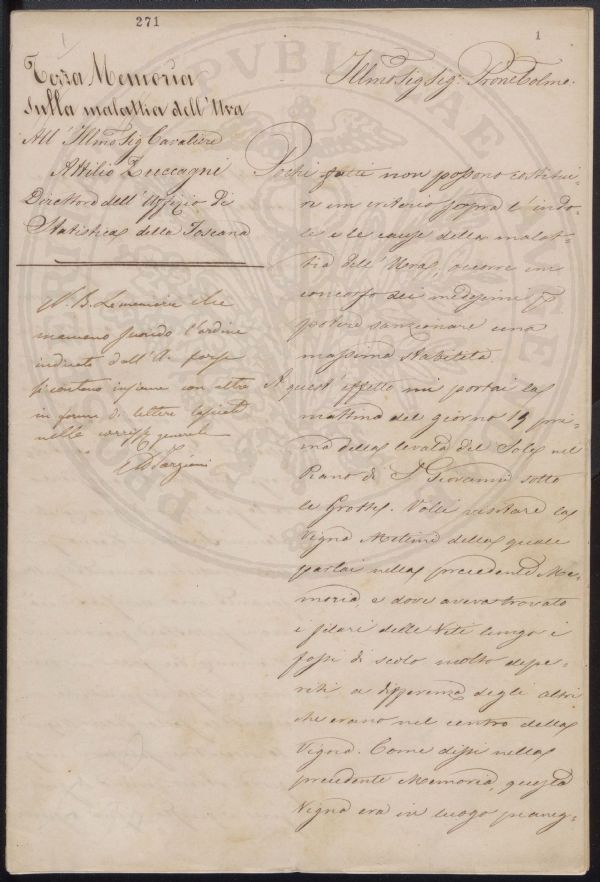 271
1
Terza Memoria
sulla malattia dell'Uva
All' Illmo Sig Cavaliere
Attilio Zuccagni
Direttore dell' Uffizio di
Statistica della Toscana
N. B. Le memorie che
mancano secondo l'ordine
indicato dall'A. forse
si contano insieme con altre
in forma di lettere
nella corrisp. generale
Targioni
Illmo Sig. Sig.e Prone Colmo.
Pochi fatti non possono costitui-
re un criterio sopra l'indo-
le e le cause della malat-
tia dell' Uva, occorre un
concorso dei medesimi p
potere sanzionare una
massima stabilità.
A quest' effetto mi portai la
mattina del giorno 19 pri-
ma della levata del Sole nel
Piano di S. Giovanni sotto
le Grotte. Volli visitare la
Vigna Molini della quale
parlai nella precedente Me-
moria, e dove aveva trovato
i filari delle Viti lungo i
fossi di scolo molto depe-
riti a differenza degli altri
che erano nel centro della
Vigna. Come dissi nella
precedente Memoria, questa
Vigna era in luogo pianeg-